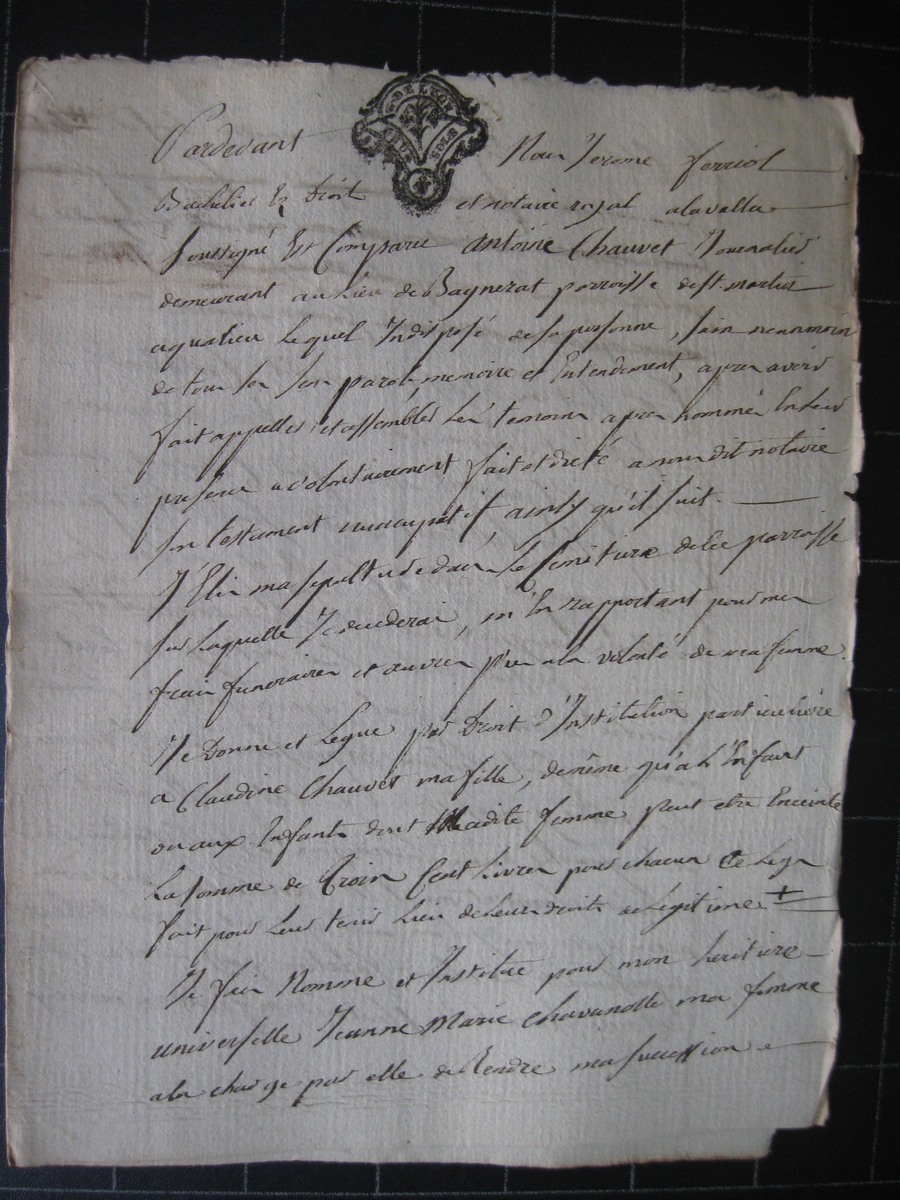 Pardevant Nous Jerome ferriol
Bachelier En Droit et notaire royal alavalla
soussigné Est Comparu antoine Chauvet Journalier
demeurant au Lieu de Bagnerat parroisse de st. martin
aqualieu Lequel Indisposé desapersonne, sain neanmoins
de tous ses sens parole, memoire et Entendement, apres avoir
fait appeller et assembler Les temoins apres nommés En leur
presence a volontairement fait et dicté a nousdit notaire
son testament nuncupatif, ainsy qu'il suit.
J'Elis masepulture dans Le Cimetiere dela parroisse
sur Laquelle Jedecederai, m'En rapportant pour mes
frais funeraires et œuvres pies ala volonté de ma femme.
Je Donne et Legue par Droit d'Institution particuliere
a Claudine Chauvet ma fille, demême qu'a L'Enfant
ou aux Enfants dont Madite femme peut etre Enceinte
La somme de Trois Cent Livres pour chacun Ce Legs
fait pour Leur tenir Lieu deLeurs droits deLégitime +
Je fais Nomme et Institue pour mon heritiere
universelle Jeanne Marie Chavanolle ma femme
ala charge par elle de Rendre masuccession a